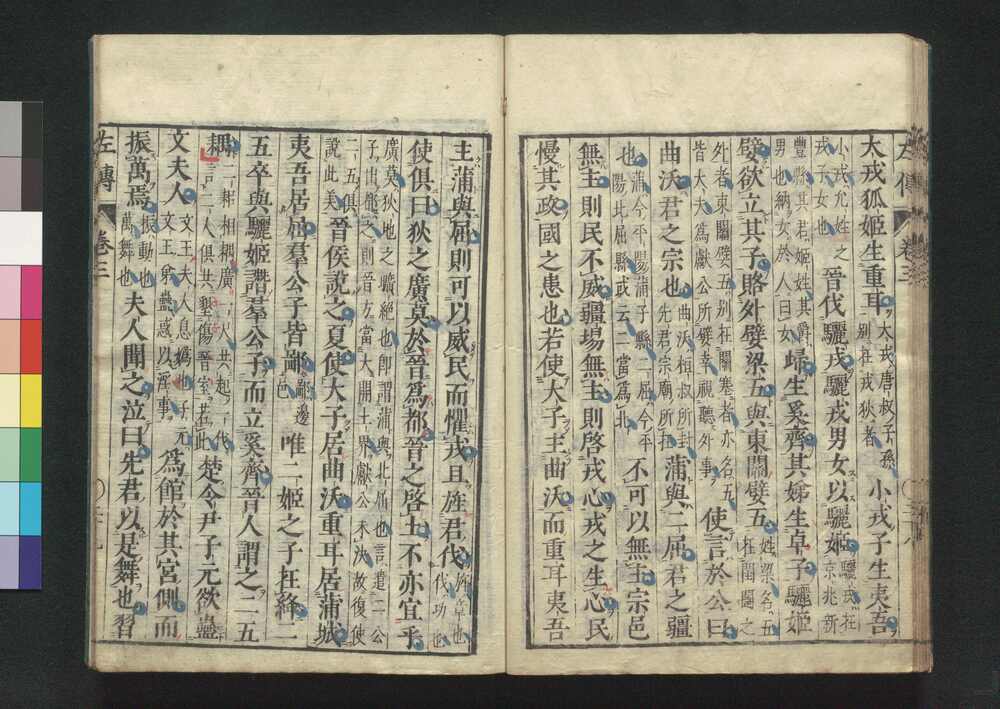 左傳 卷三
大戎狐姬生重耳大戎唐叔子孫別在戎狄者小戎子生夷吾
小戎允姓之戎子女也晉伐驪戎驪戎男女以驪姬驪戎在京兆新
豐縣其君姬姓其爵男也納女於人曰女歸生奚齊其娣生卓子驪姬
嬖欲立其子賂外嬖梁五與東關嬖五姓梁名五在閨闥之
外者東關嬖五別在關塞者亦名五皆大夫為獻公所嬖幸視聽外事使言於公曰
曲沃君之宗也曲沃桓叔所封先君宗廟所在蒲與二屈君之疆
也蒲今平陽蒲子縣二屈今平陽北屈縣或云二當爲北不可以無主宗邑
無主則民不威疆場無主則啓戎心戎之生心民
慢其政國之患也若使大子主曲沃而重耳夷吾
主蒲與屈則可以威民而懼戎且旌君伐旌章也伐功也
使俱曰狄之廣莫於晉爲都晉之啓土不亦宜乎
廣莫狄地之曠絕也即謂蒲與北屈也言遣二公子出鎮之則晉方當大開土界獻公未決故復使
二五俱說此美晉侯說之夏使大子居曲沃重耳居蒲城
夷吾居屈羣公子皆鄙鄙邊邑唯二姬之子在絳二
五卒與驪姬譖羣公子而立奚齊晉人謂之二五
耦二耜相耦廣一尺共起一伐言二人俱共墾傷晉室若此楚令尹子元欲蠱
文夫人文王夫人息嬀也子元文王弟蠱惑以淫事爲館於其宮側而
振萬焉振動也萬舞也夫人聞之泣曰先君以是舞也習
左傳 卷三